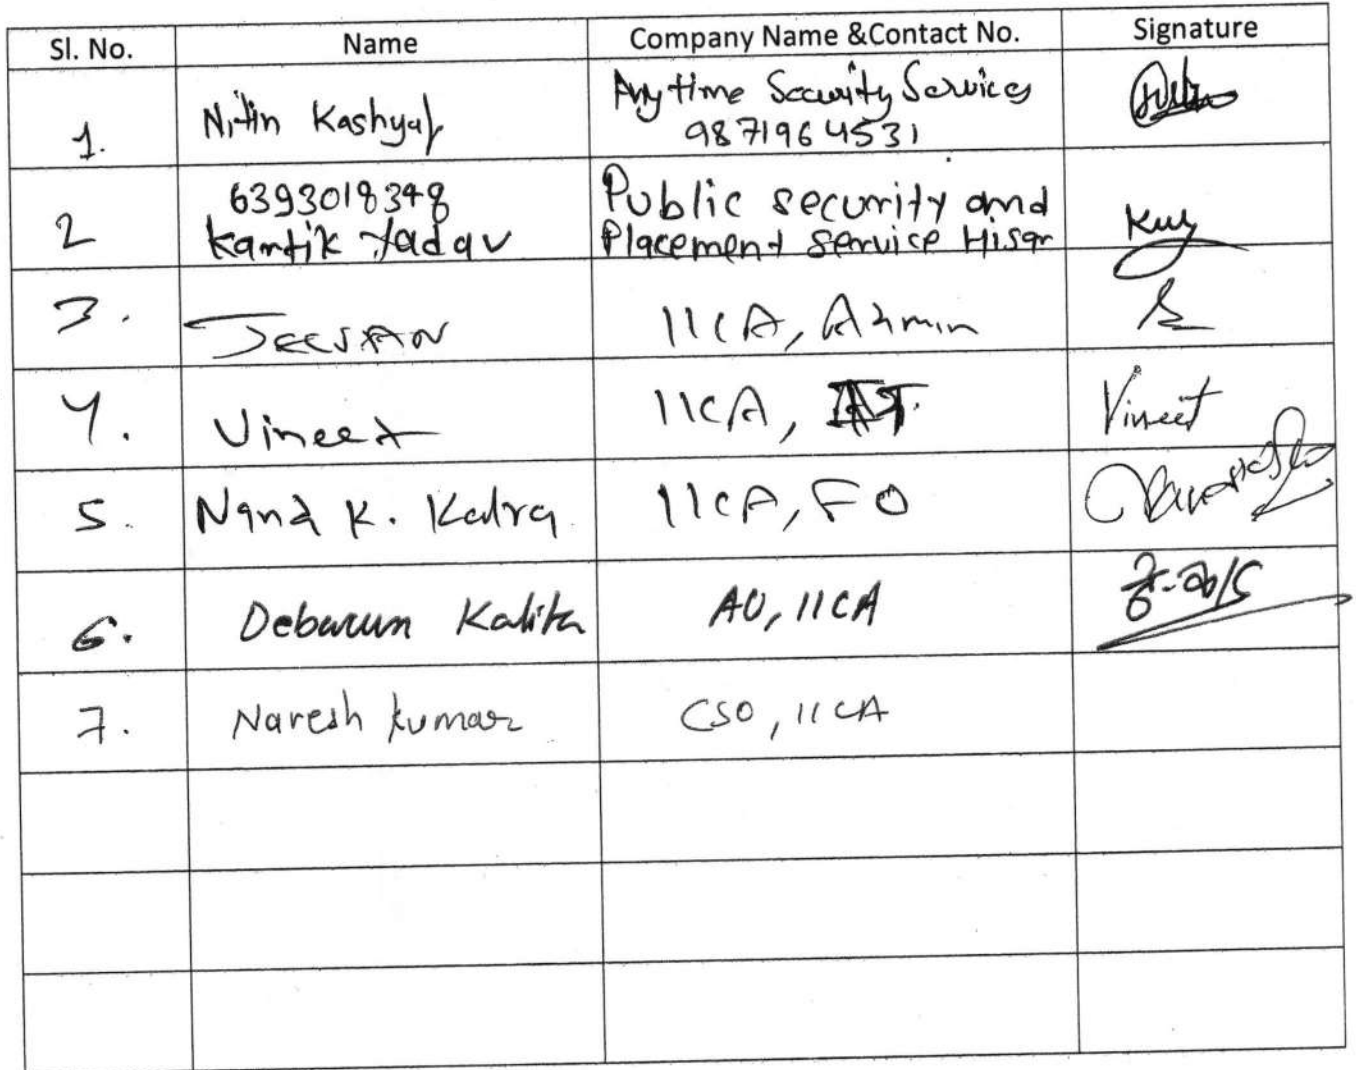 Sl. No. Name Company Name &Contact No. Signature
1. Nitin Kashyap Anytime Security Services
9871964531
6393018348 Public security and
2 Kartik Yadav Placement service Hisar
3. IICA, Admin
4. Vineet IICA, IT. Vineet
5. Nand K. Kalra IICA, FO
6. Debarun Kalita AO, IICA
7. Naresh Kumar CSO, IICA